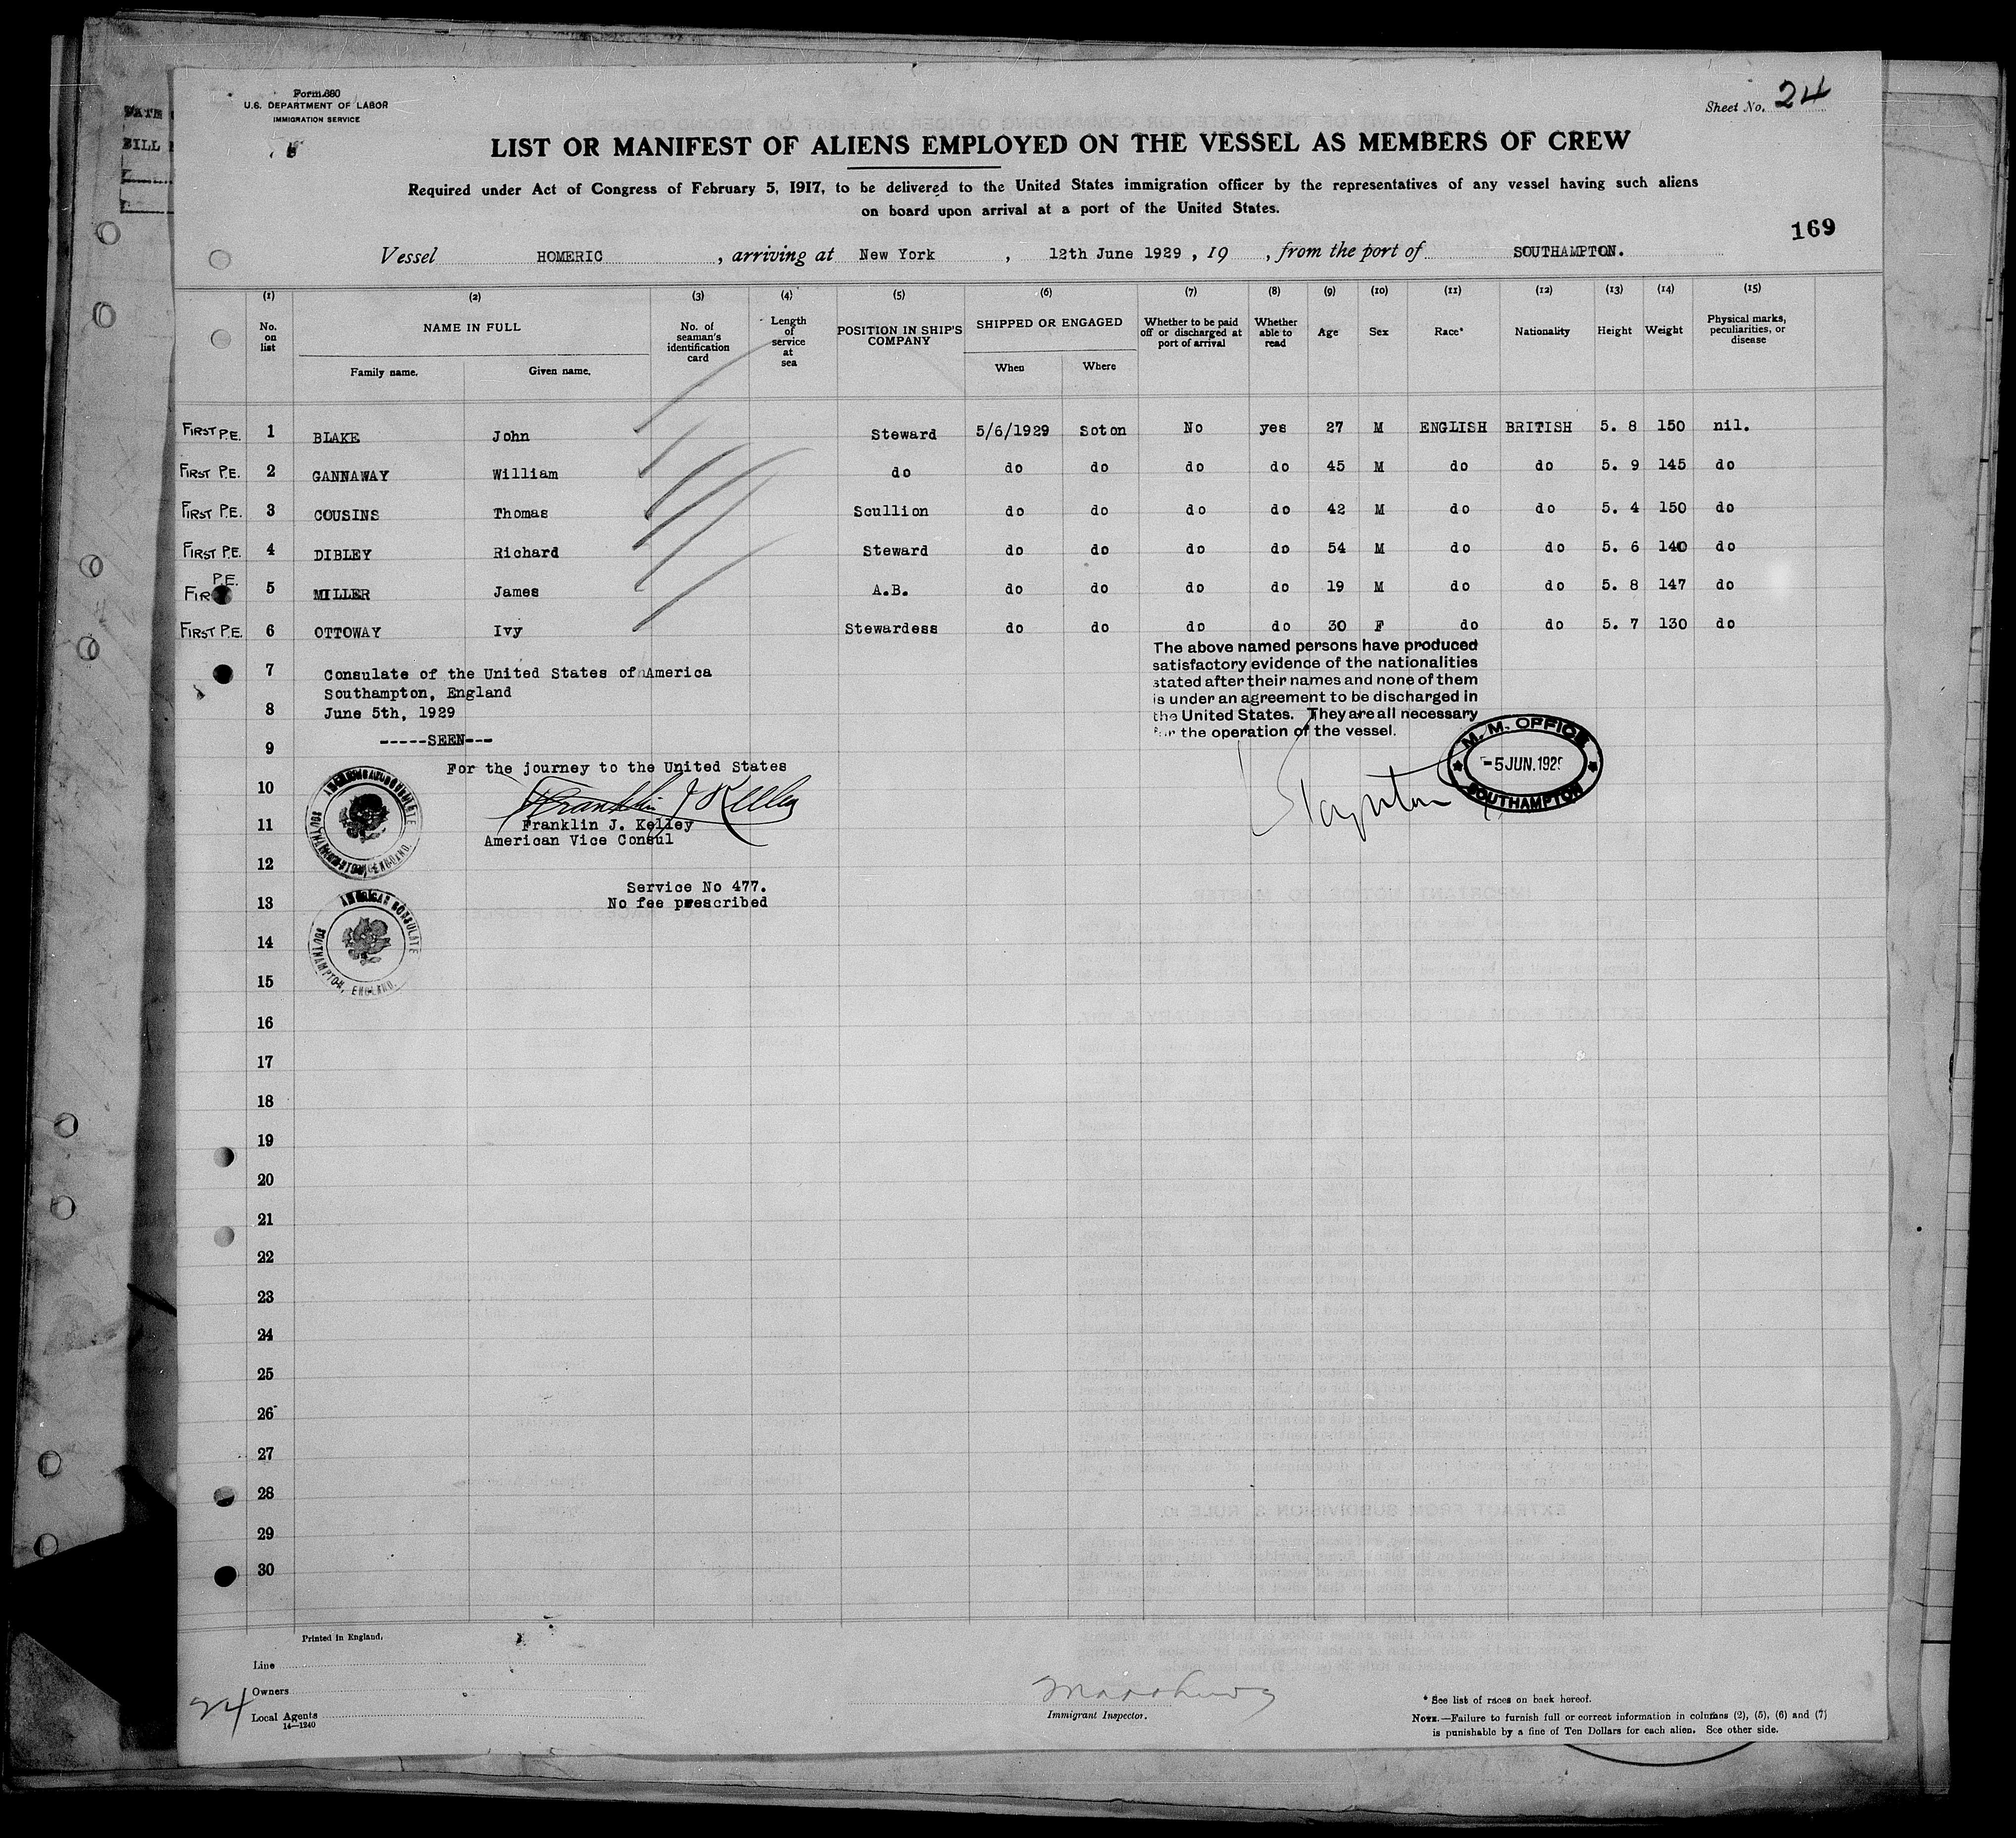 Form 680
U.S. DEPARTMENT OF LABOR
IMMIGRATION SERVICE
Sheet No. 24
LIST OR MANIFEST OF ALIENS EMPLOYED ON THE VESSEL AS MEMBERS OF CREW
Required under Act of Congress of February 5, 1917, to be delivered to the United States immigration officer by the representatives of any vessel having such aliens
on board upon arrival at a port of the United States.
169
Vessel HOMERIC, arriving at New York, 12th June 1929, 19 , from the port of SOUTHAMPTON.
(1) (2) (3) (4) (5) (6) (7) (8) (9) (10) (11) (12) (13) (14) (15)
No. on list NAME IN FULL Family name. Given name. No. of seaman's identification card Length of service at sea POSITION IN SHIP'S COMPANY SHIPPED OR ENGAGED When Where Whether to be paid off or discharged at port of arrival Whether able to read Age Sex Race* Nationality Height Weight Physical marks, peculiarities, or disease
FIRST P.E. 1 BLAKE John Steward 5/6/1929 Soton No yes 27 M ENGLISH BRITISH 5. 8 150 nil.
FIRST P.E. 2 GANNAWAY William do do do do do 45 M do do 5. 9 145 do
FIRST P.E. 3 COUSINS Thomas Scullion do do do do 42 M do do 5. 4 150 do
FIRST P.E. 4 DIBLEY Richard Steward do do do do 54 M do do 5. 6 140 do
FIRST P.E. 5 MILLER James A.B. do do do do 19 M do do 5. 8 147 do
FIRST P.E. 6 OTTOWAY Ivy Stewardess do do do do 30 F do do 5. 7 130 do
The above named persons have produced
satisfactory evidence of the nationalities
stated after their names and none of them
is under an agreement to be discharged in
the United States. They are all necessary
for the operation of the vessel.
M. M. OFFICE
-5 JUN. 1929
SOUTHAMPTON
7 Consulate of the United States of America
Southampton, England
8 June 5th, 1929
9 -----SEEN---
For the journey to the United States
10 Franklin J Kelley
11 Franklin J. Kelley
American Vice Consul
AMERICAN CONSULATE
SOUTHAMPTON, ENGLAND.
12
Service No 477.
13 No fee prescribed
AMERICAN CONSULATE
SOUTHAMPTON, ENGLAND.
14
15
16
17
18
19
20
21
22
23
24
25
26
27
28
29
30
Printed in England.
Line
Owners
Local Agents
14—1240
24
Immigrant Inspector.
* See list of races on back hereof.
NOTE.—Failure to furnish full or correct information in columns (2), (5), (6) and (7)
is punishable by a fine of Ten Dollars for each alien. See other side.